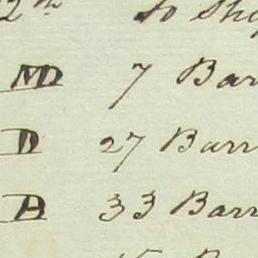 2th to Ship
MD 7 Bar
D 27 Barr
A 33 Barr